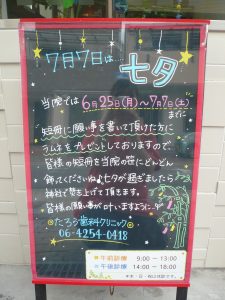 7月7日は
七夕
当院では 6月25日(月)〜7月7日(土)
までに
短冊に願い事を書いて頂けた方に
ラムネをプレゼントしておりますので
皆様の短冊を当院の笹にどんどん
飾ってくださいね♪七夕が過ぎましたら
神社で焚き上げて頂きます。
皆様の願い事が叶いますように
たろう歯科クリニック
06-4254-0418
午前診療 9:00〜13:00
午後診療 14:00〜18:00